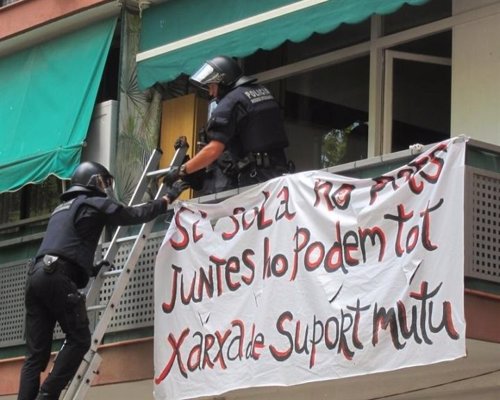 POLICIA
Sí sola no pots
JUNTES ho Podem tot
xarxa de Suport mutu